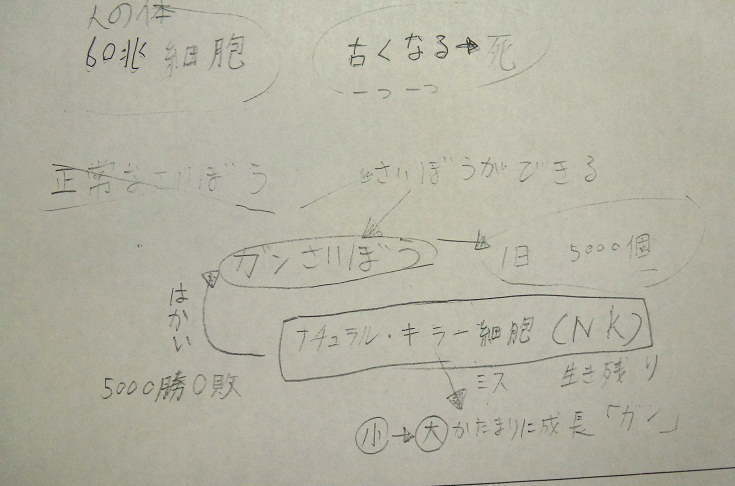 人の体
60兆 細胞
古くなる→死
一つ一つ
正常なさいぼう
さいぼうができる
ガンさいぼう
1日 5000個
はかい
ナチュラル・キラー細胞(NK)
5000勝0敗
ミス 生き残り
小→大 かたまりに成長「ガン」